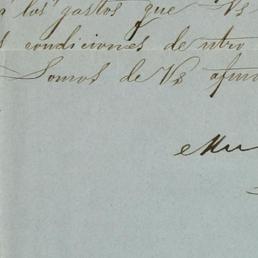 los gastos que Vs
condiciones de ntro
Somos de Vs afmos